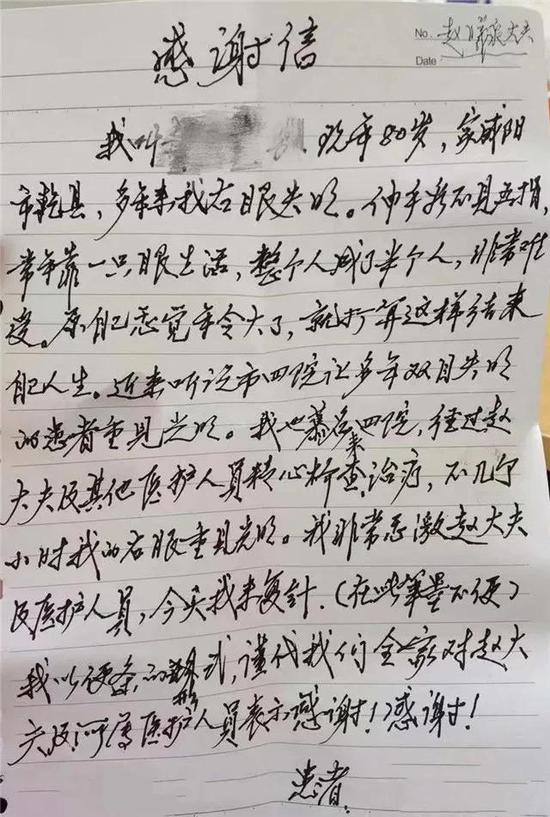 感谢信
No. 赵
大夫
Date
我叫 现年80岁，家咸阳
市乾县，多年来我右眼失明。伸手影不见五指，
常年靠一只眼生活，整个人成了半个人，非常难
受。原自己感觉年令大了，就打算这样结束
自己人生。近来听说市四院让多年双目失明
的患者重见光明。我也慕名来四院，经过赵
大夫及其他医护人员精心检查治疗，不几个
小时我的右眼重见光明。我非常感激赵大夫
及医护人员，今天我来复诊.（在此笔墨不便）
我以便条的形式，谨代我们全家对赵大
夫及所属医护人员表示感谢！感谢！
患者.